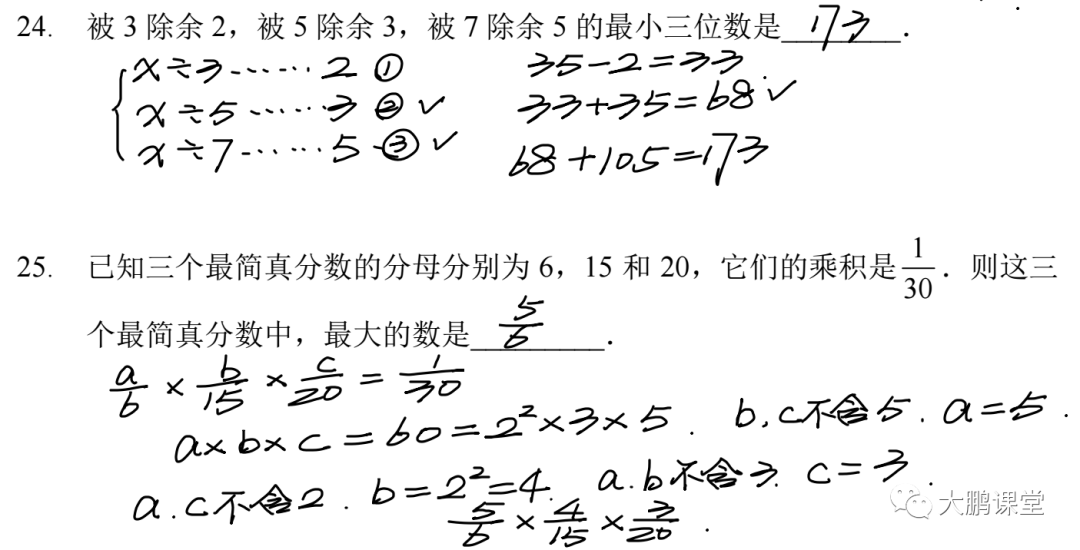 24. 被 3 除余 2，被 5 除余 3，被 7 除余 5 的最小三位数是 173 ．
x÷3……2 ① 35-2=33
x÷5……3 ② ✓ 33+35=68 ✓
x÷7……5 ③ ✓ 68+105=173
25. 已知三个最简真分数的分母分别为 6，15 和 20，它们的乘积是 1/30 ．则这三
个最简真分数中，最大的数是 5/6 ．
a/6 × b/15 × c/20 = 1/30
a×b×c=60=2²×3×5． b,c不含5．a=5．
a.c不含2．b=2²=4． a.b不含3．c=3．
5/6 × 4/15 × 3/20．
大鹏课堂